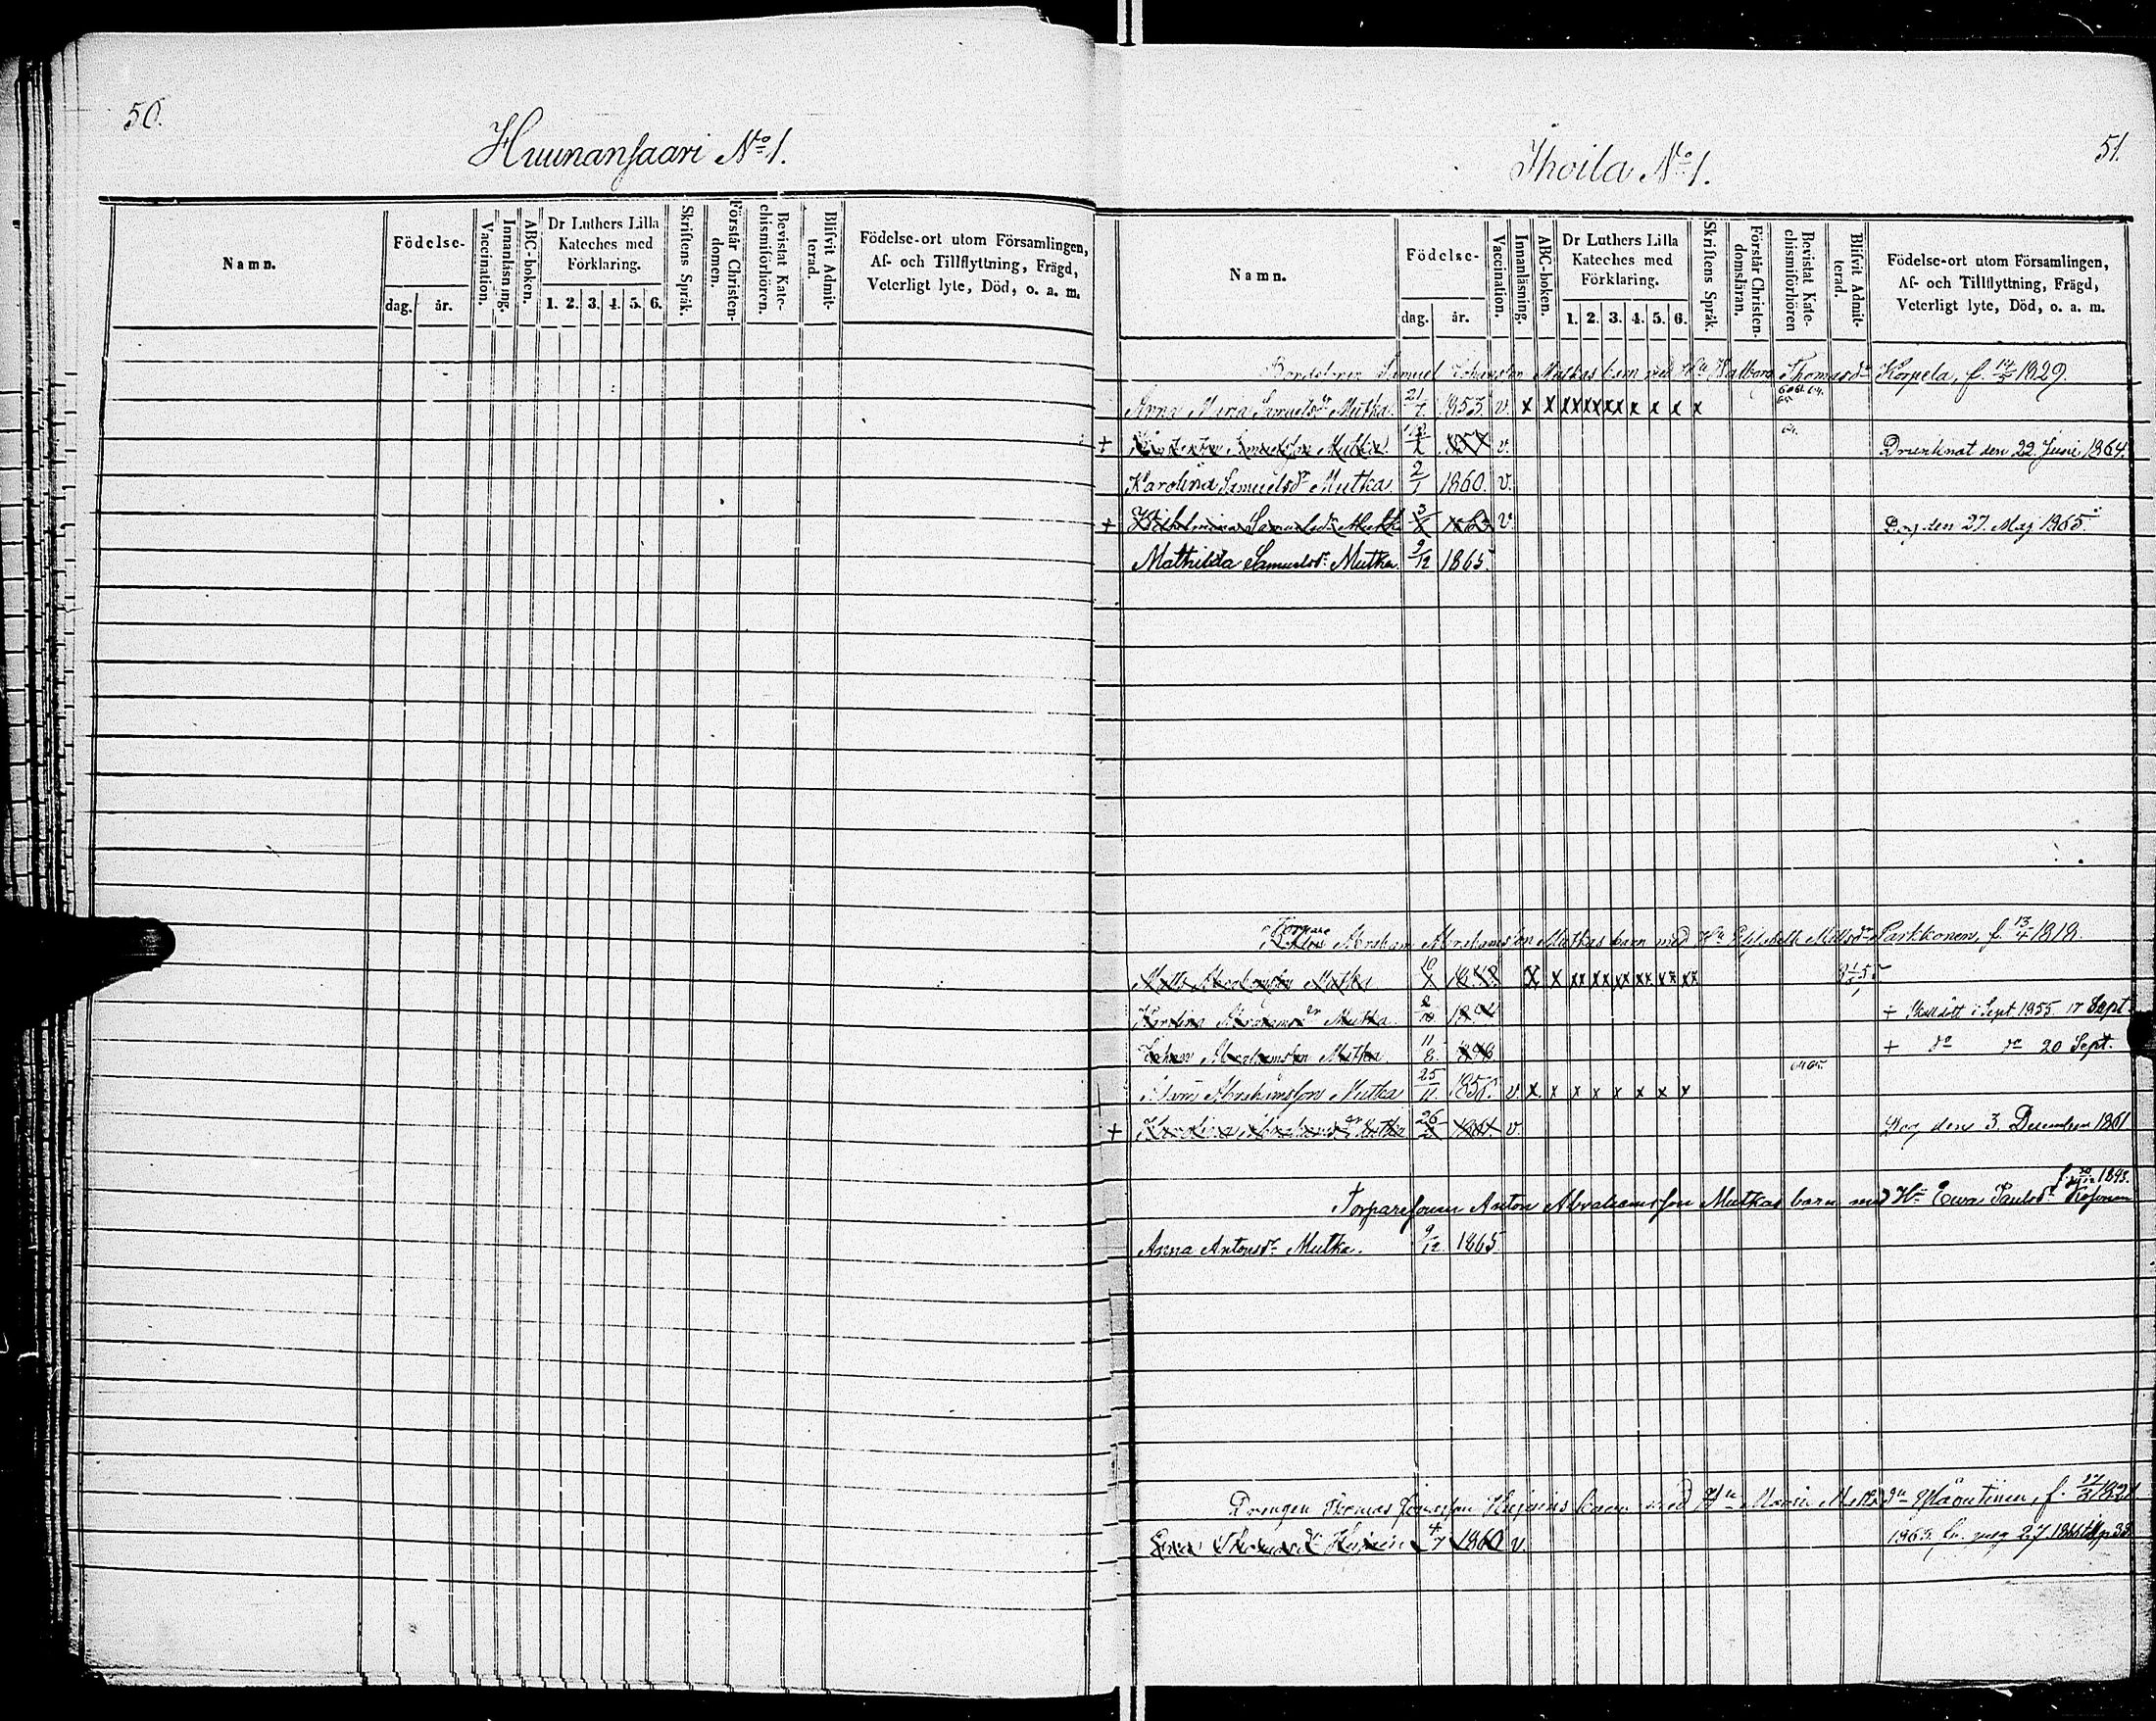 50.
Huunansaari No 1.
Namn.
Födelse-
dag. år.
Vaccination.
Innanläsning.
ABC-boken.
Dr Luthers Lilla Kateches med Förklaring.
1. 2. 3. 4. 5. 6.
Skriftens Språk.
Förstår Christendomen.
Bevistat Katechismiförhören.
Blifvit Admitterad.
Födelse-ort utom Församlingen,
Af- och Tillflyttning, Frägd,
Veterligt lyte, Död, o. a. m.
51.
Ihoila No 1.
Namn.
Födelse-
dag. år.
Vaccination.
Innanläsning.
ABC-boken.
Dr Luthers Lilla Kateches med Förklaring.
1. 2. 3. 4. 5. 6.
Skriftens Språk.
Förstår Christendomsläran.
Bevistat Katechismiförhören
Blifvit Admitterad.
Födelse-ort utom Församlingen,
Af- och Tillflyttning, Frägd,
Veterligt lyte, Död, o. a. m.
Samuel Johansson Mutkas barn med Hu Walborg Thomasdr Korpela, f. 1829.
Anna Maria Samuelsdr Mutka. 1855. v. x x xx xx xx x x x x
+ Samuelsson Mutka. v. Drunknat den 22. Juni 1864.
Karolina Samuelsdr Mutka. 2/1 1860. v.
+ Wilhelmina Samuelsdr Mutka 1863 v. Dog den 27. Maj 1865.
Mathilda Samuelsdr Mutka. 9/12 1865.
Torpare Abraham Abrahamsson Mutkas barn med Hu Elisabeth Mattsdr Parkkonen, f. 13/4 1818.
Matts Abrahamsson Mutka x x xx xx xx xx xx xx
Abrahamsdr Mutka. + Sept 1855. 17 Sept.
Johan Abrahamsson Mutka. 11/8. 1848 + do do 20 Sept.
Adam Abrahamsson Mutka 25/11. v x x x x x x x x
+ Karolina Abrahamsdr Mutka 1861. v. Dog den 3. December 1861
f. 1843.
Torparesonen Anton Abrahamsson Mutkas barn med Hu Eva Paulsdr
Anna Antonsdr Mutka. 9/12. 1865
Drengen Thomas Hujasins barn med Hu Maria Mattsdr f. 1821
Eva Thomasdr 4/7 1860 v. 1863 pag 27.